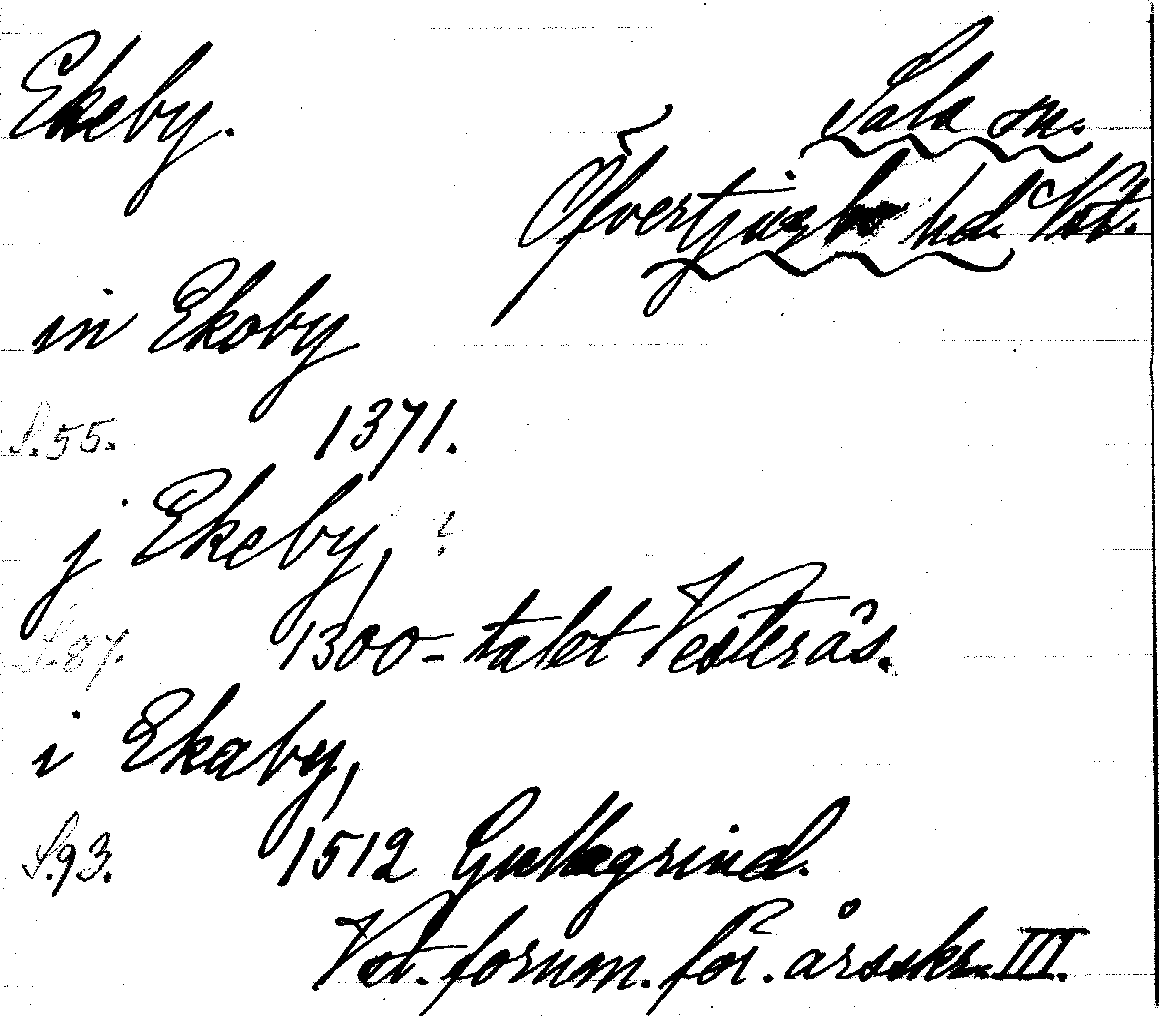 Ekeby.
Sala sn.
Öfvertjurbo hd. Vst.
in Ekoby
S. 55. 1371.
j Ekeby, ?
S. 87. 1300-talet Vesterås.
i Ekaby,
S. 93. 1512 Gullegrind.
Vst. fornm. för. årsskr. III.